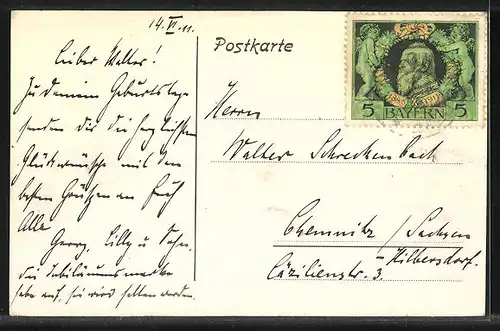 14. VI. 11.
Lieber Walter!
Zu deinem Geburtstage
senden dir die herzlichsten
Glückwünsche mit den
besten Grüßen an Euch
Alle
Georg, Lilly u. Sohn.
Die Jubiläumsmarke
hebe auf, sie wird selten werden.
Postkarte
1886 1911
5 BAYERN 5
Herrn
Walter Schreckenbach
Chemnitz / Sachsen
-Hilbersdorf.
Cäzilienstr. 3.